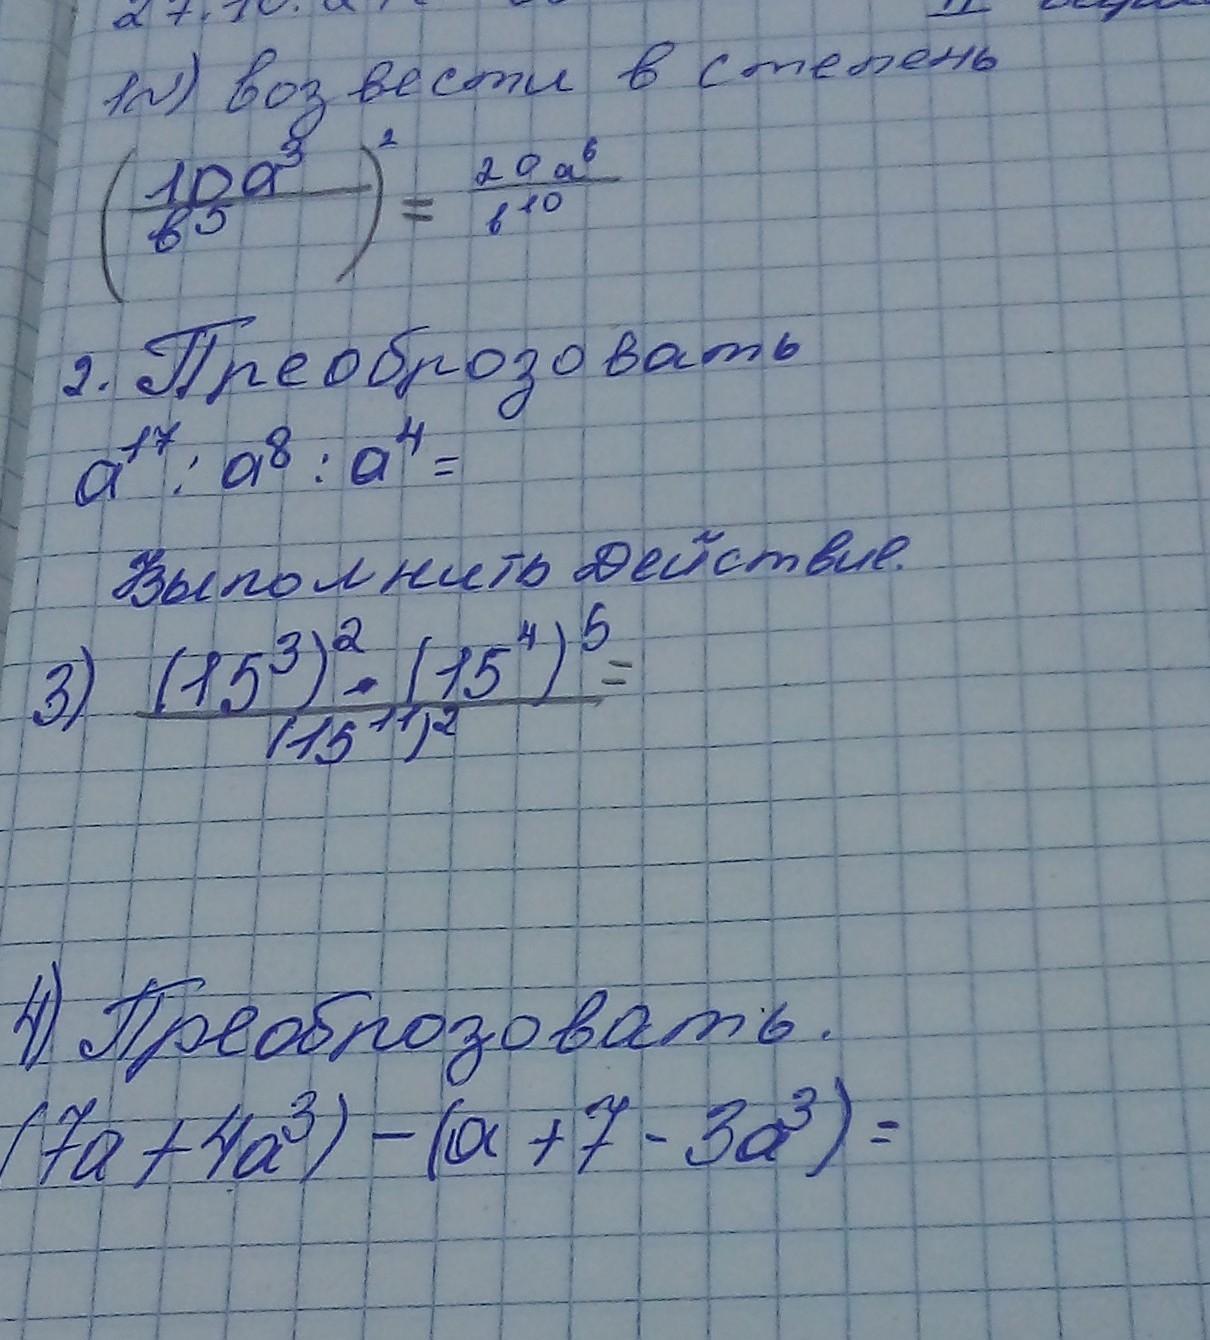 1N) возвести в степень
(10a³/в⁵)² = 20a⁶/в¹⁰
2. Преоброзовать
a¹⁷ : a⁸ : a⁴ =
Выполнить действие.
3) (15³)² · (15⁴)⁵ =
(15¹¹)²
4) Преоброзовать.
(7a + 4a³) - (a + 7 - 3a³) =